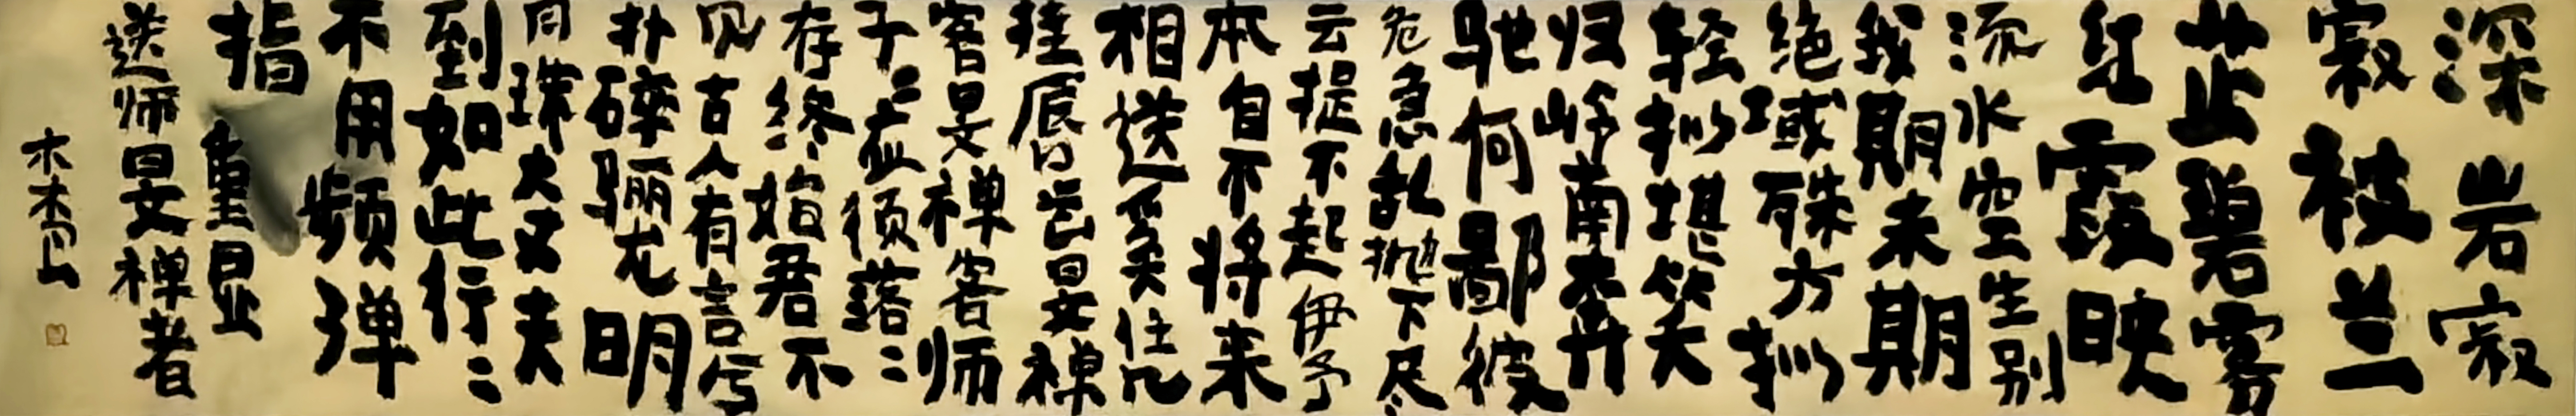 深岩寂
寂被兰
芷碧雾
红霞映
流水空生别
我期未期
绝域殊方拟
轻拟堪笑
归峥南奔
驰何鄙彼
危急乱抛下尽
云提不起伊予
本自不将来
相送奚
挂唇口云旻禅
客旻禅客师
子〻应须落〻
存终始君不
见古人有言兮
扑碎骊龙明
月珠大丈夫
到如此行〻
不用频弹
指 重显
送师旻禅者
木木山